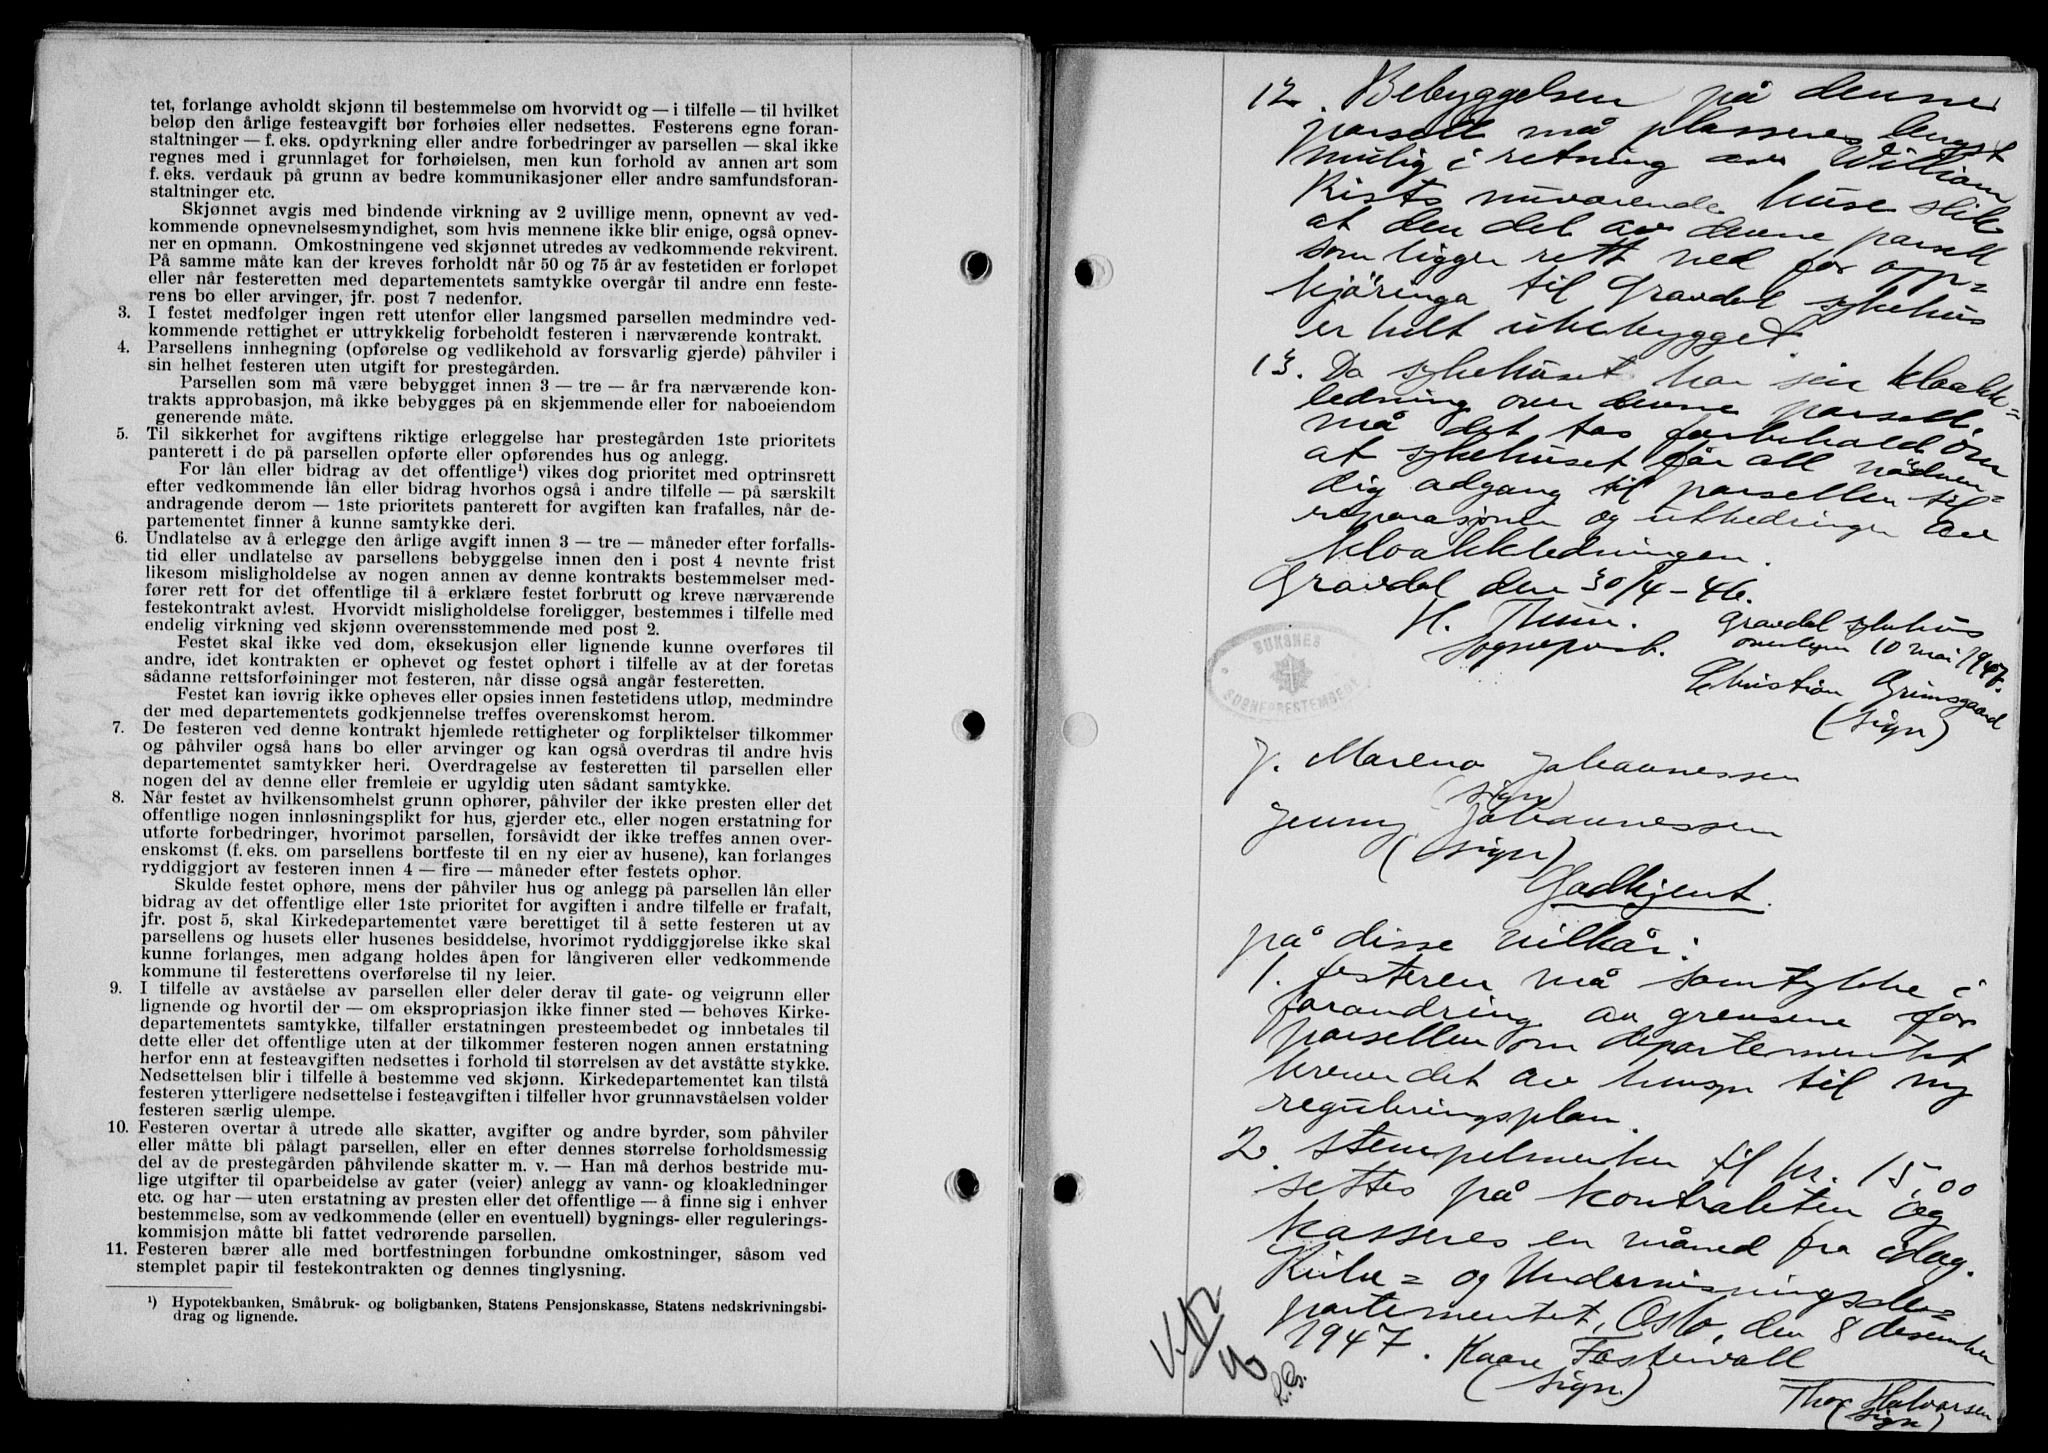 tet, forlange avholdt skjønn til bestemmelse om hvorvidt og — i tilfelle — til hvilket
beløp den årlige festeavgift bør forhøies eller nedsettes. Festerens egne foran-
staltninger — f. eks. opdyrkning eller andre forbedringer av parsellen — skal ikke
regnes med i grunnlaget for forhøielsen, men kun forhold av annen art som
f. eks. verdauk på grunn av bedre kommunikasjoner eller andre samfundsforan-
staltninger etc.
Skjønnet avgis med bindende virkning av 2 uvillige menn, opnevnt av ved-
kommende opnevnelsesmyndighet, som hvis mennene ikke blir enige, også opnev-
ner en opmann. Omkostningene ved skjønnet utredes av vedkommende rekvirent.
På samme måte kan der kreves forholdt når 50 og 75 år av festetiden er forløpet
eller når festeretten med departementets samtykke overgår til andre enn feste-
rens bo eller arvinger, jfr. post 7 nedenfor.
3. I festet medfølger ingen rett utenfor eller langsmed parsellen medmindre ved-
kommende rettighet er uttrykkelig forbeholdt festeren i nærværende kontrakt.
4. Parsellens innhegning (opførelse og vedlikehold av forsvarlig gjerde) påhviler i
sin helhet festeren uten utgift for prestegården.
Parsellen som må være bebygget innen 3 — tre — år fra nærværende kon-
trakts approbasjon, må ikke bebygges på en skjemmende eller for naboeiendom
generende måte.
5. Til sikkerhet for avgiftens riktige erleggelse har prestegården 1ste prioritets
panterett i de på parsellen opførte eller opførendes hus og anlegg.
For lån eller bidrag av det offentlige¹) vikes dog prioritet med optrinsrett
efter vedkommende lån eller bidrag hvorhos også i andre tilfelle — på særskilt
andragende derom — 1ste prioritets panterett for avgiften kan frafalles, når de-
partementet finner å kunne samtykke deri.
6. Undlatelse av å erlegge den årlige avgift innen 3 — tre — måneder efter forfalls-
tid eller undlatelse av parsellens bebyggelse innen den i post 4 nevnte frist
likesom misligholdelse av nogen annen av denne kontrakts bestemmelser med-
fører rett for det offentlige til å erklære festet forbrutt og kreve nærværende
festekontrakt avlest. Hvorvidt misligholdelse foreligger, bestemmes i tilfelle med
endelig virkning ved skjønn overensstemmende med post 2.
Festet skal ikke ved dom, eksekusjon eller lignende kunne overføres til
andre, idet kontrakten er ophevet og festet ophørt i tilfelle av at der foretas
sådanne rettsforføininger mot festeren, når disse også angår festeretten.
Festet kan iøvrig ikke opheves eller opsies innen festetidens utløp, medmindre
der med departementets godkjennelse treffes overenskomst herom.
7. De festeren ved denne kontrakt hjemlede rettigheter og forpliktelser tilkommer
og påhviler også hans bo eller arvinger og kan også overdras til andre hvis
departementet samtykker heri. Overdragelse av festeretten til parsellen eller
nogen del av denne eller fremleie er ugyldig uten sådant samtykke.
8. Når festet av hvilkensomhelst grunn ophører, påhviler der ikke presten eller det
offentlige nogen innløsningsplikt for hus, gjerder etc., eller nogen erstatning for
utførte forbedringer, hvorimot parsellen, forsåvidt der ikke treffes annen over-
enskomst (f. eks. om parsellens bortfeste til en ny eier av husene), kan forlanges
ryddiggjort av festeren innen 4 — fire — måneder efter festets ophør.
Skulde festet ophøre, mens der påhviler hus og anlegg på parsellen lån eller
bidrag av det offentlige eller 1ste prioritet for avgiften i andre tilfelle er frafalt,
jfr. post 5, skal Kirkedepartementet være berettiget til å sette festeren ut av
parsellens og husets eller husenes besiddelse, hvorimot ryddiggjørelse ikke skal
kunne forlanges, men adgang holdes åpen for långiveren eller vedkommende
kommune til festerettens overførelse til ny leier.
9. I tilfelle av avståelse av parsellen eller deler derav til gate- og veigrunn eller
lignende og hvortil der — om ekspropriasjon ikke finner sted — behøves Kirke-
departementets samtykke, tilfaller erstatningen presteembedet og innbetales til
dette eller det offentlige uten at der tilkommer festeren nogen annen erstatning
herfor enn at festeavgiften nedsettes i forhold til størrelsen av det avståtte stykke.
Nedsettelsen blir i tilfelle å bestemme ved skjønn. Kirkedepartementet kan tilstå
festeren ytterligere nedsettelse i festeavgiften i tilfeller hvor grunnavståelsen volder
festeren særlig ulempe.
10. Festeren overtar å utrede alle skatter, avgifter og andre byrder, som påhviler
eller måtte bli pålagt parsellen, eller en efter dennes størrelse forholdsmessig
del av de prestegården påhvilende skatter m. v. — Han må derhos bestride mu-
lige utgifter til oparbeidelse av gater (veier) anlegg av vann- og kloakledninger
etc. og har — uten erstatning av presten eller det offentlige — å finne sig i enhver
bestemmelse, som av vedkommende (eller en eventuell) bygnings- eller regulerings-
kommisjon måtte bli fattet vedrørende parsellen.
11. Festeren bærer alle med bortfestningen forbundne omkostninger, såsom ved
stemplet papir til festekontrakten og dennes tinglysning.
¹) Hypotekbanken, Småbruk- og boligbanken, Statens Pensjonskasse, Statens nedskrivningsbi-
drag og lignende.
12. Bebyggelsen på denne
parsell må plasseres lengst
mulig i retning av William
Rists nuværende huse slik
at den del av denne parsell
som ligger rett ned for opp=
kjöringa til Gravdal sykehus
er helt ubebygget.
13. Da sykehuset har sin kloakk=
ledning over denne parsell,
må det tas forbehold om
at sykehuset får all nödven=
dig adgang til parsellen til
reparasjoner og utbedringer av
kloakkledningen.
Gravdal den 30/4-46.
H. Thune.
Sogneprest.
BUKSNES
SOGNEPRESTEMBEDE
Gravdal sykehus
overlegen 10 mai 1947.
Christian Grimsgaard
(sign)
J. Marena Johannessen
(sign)
Jenny Johannessen
(sign)
Godkjent.
på disse vilkår:
1. festeren må samtykke i
forandring av grensene for
parsellen om departementet
krever det av hensyn til ny
reguleringsplan.
2. stempelmerker til kr. 15,00
settes på kontrakten og
kasseres en måned fra idag.
Kirke= og Undervisningsde=
partementet, Oslo, den 8 desember
1947. Kaare Fostervoll
(sign.)
Thor Halvorsen
(sign)